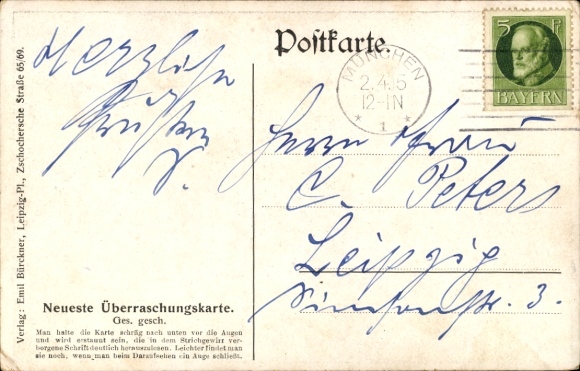 Postkarte.
MÜNCHEN
2.4.15
12-1N
* 1 *
5 Pf
BAYERN
Herzliche
Grüße
Herrn Frau
C. Peters
Leipzig
str. 3.
Neueste Überraschungskarte.
Ges. gesch.
Man halte die Karte schräg nach unten vor die Augen
und wird erstaunt sein, die in dem Strichgewirr ver-
borgene Schrift deutlich herauszulesen. Leichter findet man
sie noch, wenn man beim Daraufsehen ein Auge schließt.
Verlag: Emil Bürckner, Leipzig-Pl., Zschochersche Straße 65/69.